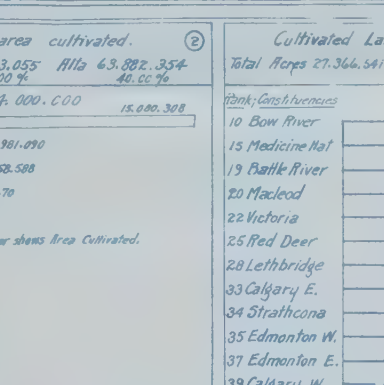 area cultivated. ②
3.055 Alta 63.882.354
00 % 40.00 %
000.000 15.080.308
981.090
58.588
70
shows Area Cultivated.
Cultivated La
Total Acres 27.366.541
Rank; Constituencies
10 Bow River
15 Medicine Hat
19 Battle River
20 Macleod
22 Victoria
25 Red Deer
28 Lethbridge
33 Calgary E.
34 Strathcona
35 Edmonton W.
37 Edmonton E.
39 Calgary W.